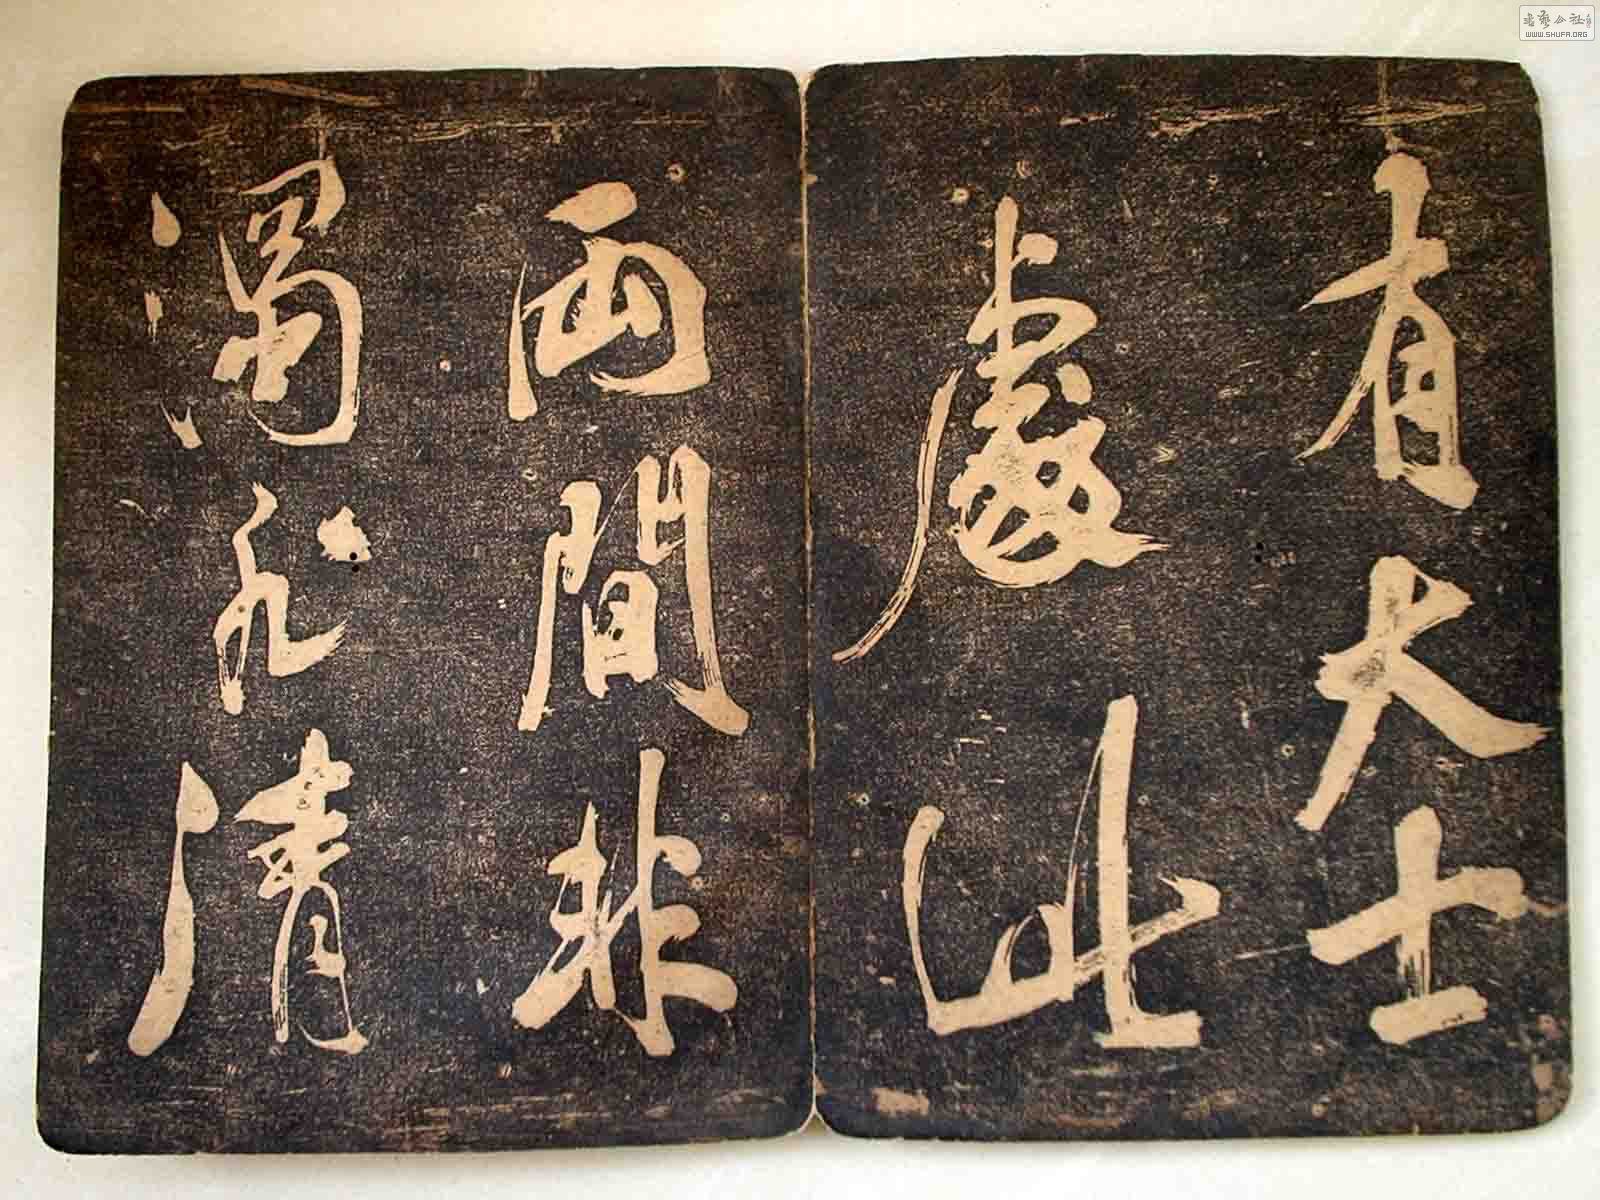 有大士
處此
兩間非
濁 清
书艺公社
WWW.SHUFA.ORG